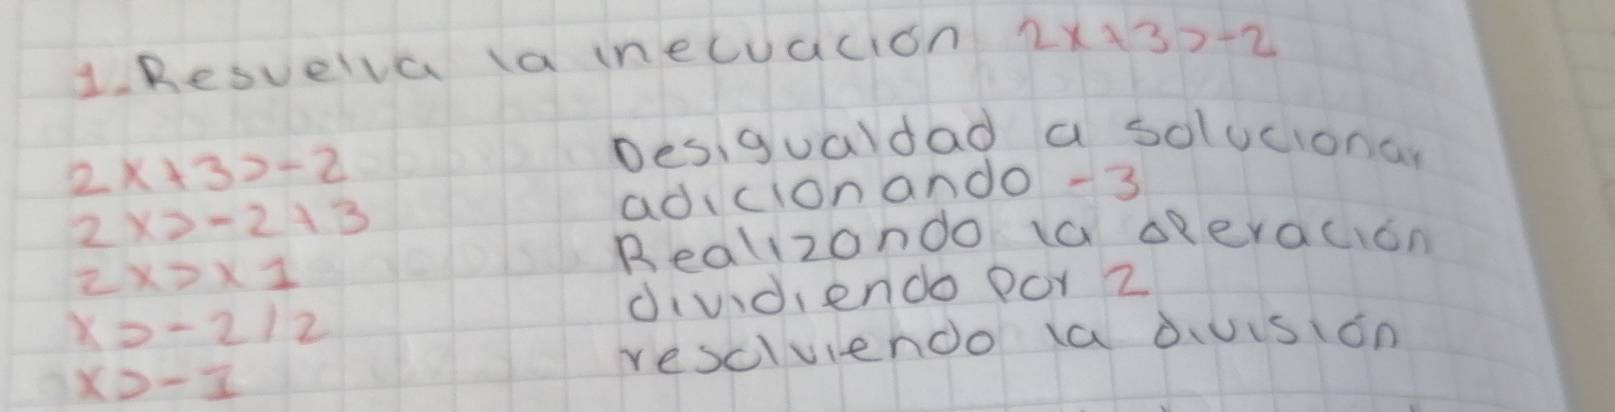 1. Resuelva la inecuación 2x+3>-2
2x+3>-2 Desigualdad a solucionar
2x>-2+3 adicionando -3
2x>x1 Realizando la operación
x>-2/2 dividiendo por 2
x>-1 resolviendo la división